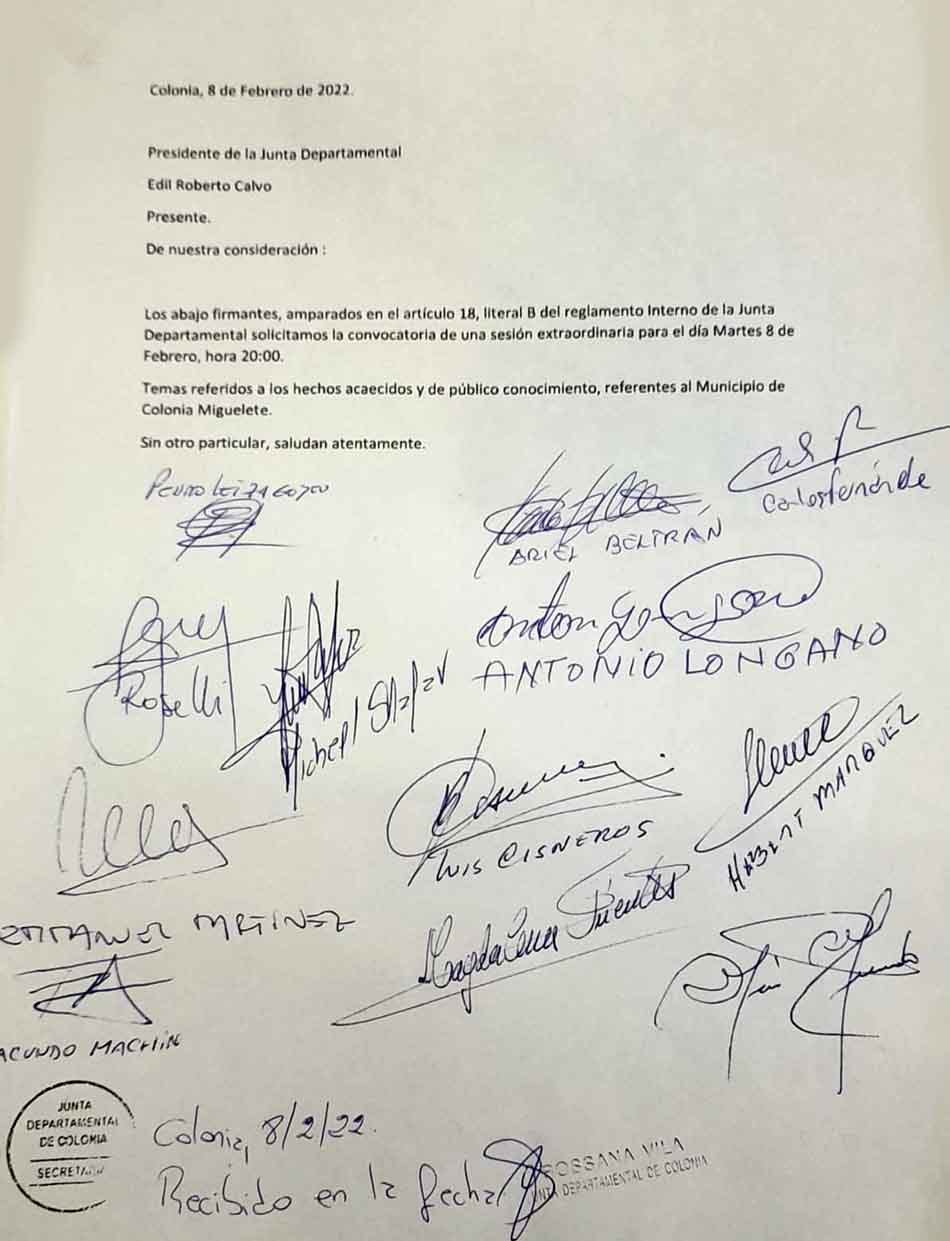 Colonia, 8 de Febrero de 2022.
Presidente de la Junta Departamental
Edil Roberto Calvo
Presente.
De nuestra consideración :
Los abajo firmantes, amparados en el artículo 18, literal B del reglamento Interno de la Junta
Departamental solicitamos la convocatoria de una sesión extraordinaria para el día Martes 8 de
Febrero, hora 20:00.
Temas referidos a los hechos acaecidos y de público conocimiento, referentes al Municipio de
Colonia Miguelete.
Sin otro particular, saludan atentamente.
PEDRO
Carlos Fernánde
ARIEL BELTRAN
ANTONIO LONGANO
Roselli
Michell
LUIS CISNEROS
MARQUEZ
Magdalena Fuentes
MARTINEZ
ACUNDO MACHÍN
JUNTA
DEPARTAMENTAL
DE COLONIA
Colonia, 8/2/22.
Recibido en la fecha
ROSSANA VILA
JUNTA DEPARTAMENTAL DE COLONIA